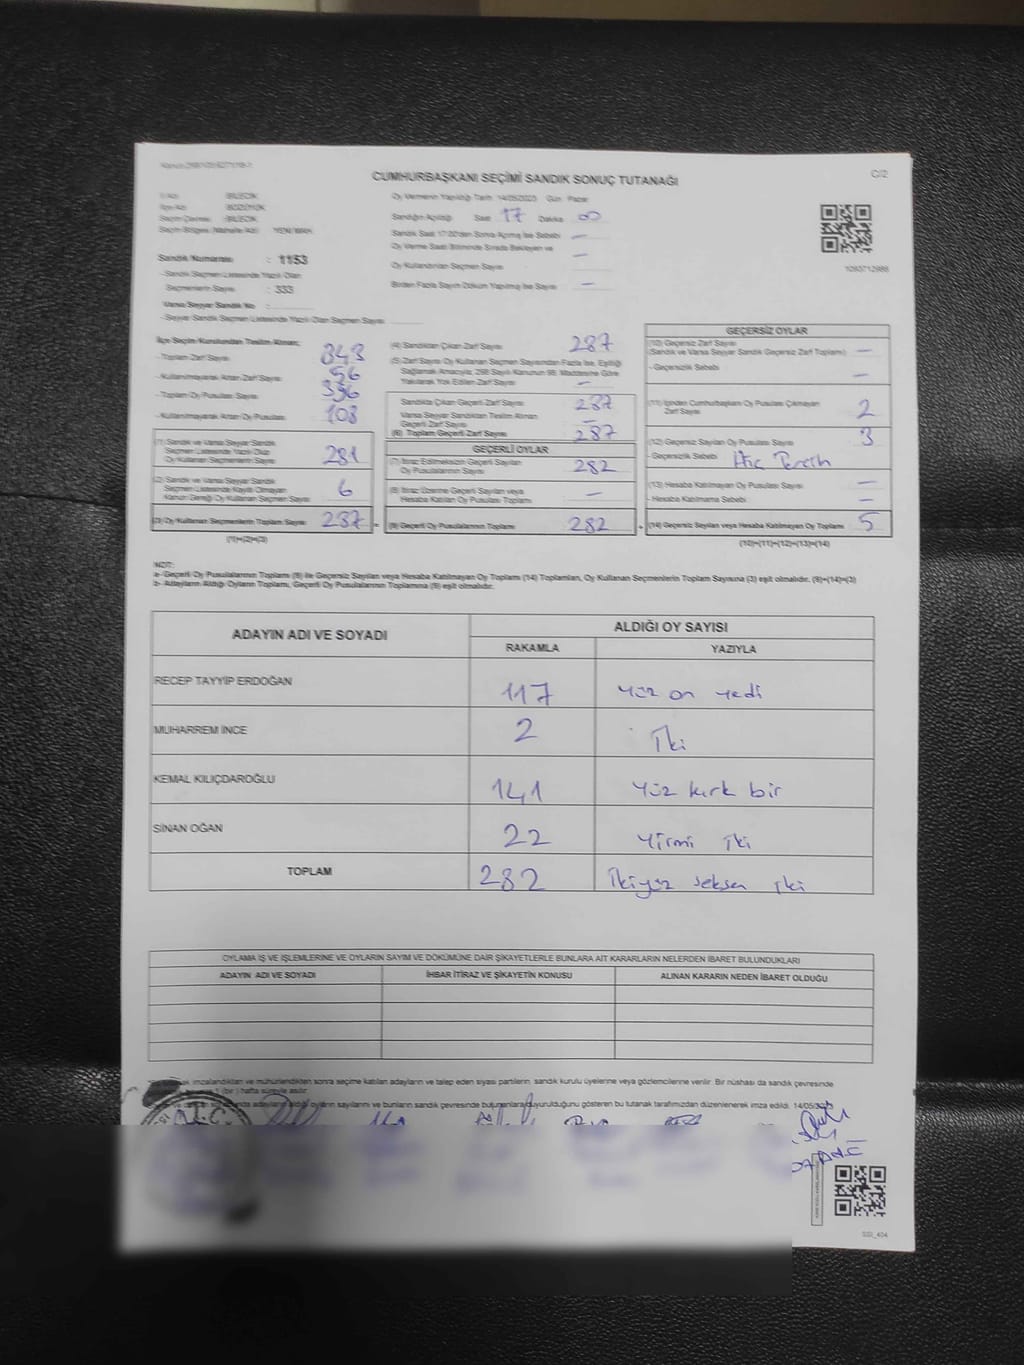 CUMHURBAŞKANI SEÇİMİ SANDIK SONUÇ TUTANAĞI
C/2
İl Adı :BİLECİK
İlçe Adı :BOZÜYÜK
Seçim Çevresi :BİLECİK
Seçim Bölgesi (Mahalle/Adı) YENİ MAH.
Sandık Numarası : 1153
-Sandık Seçmen Listesinde Yazılı Olan
Seçmenlerin Sayısı : 333
Varsa Seyyar Sandık No :
-Seyyar Sandık Seçmen Listesinde Yazılı Olan Seçmen Sayısı
Oy Vermenin Yapıldığı Tarih: 14/05/2023 Gün: Pazar
Sandığın Açıldığı Saat 17 Dakika 00
Sandık Saat 17:00'den Sonra Açılmış İse Sebebi —
Oy Verme Saati Bitiminde Sırada Bekleyen ve
Oy Kullandırılan Seçmen Sayısı —
Birden Fazla Sayım Döküm Yapılmış İse Sayısı —
1093712988
İlçe Seçim Kurulundan Teslim Alınan;
-Toplam Zarf Sayısı 343
-Kullanılmayarak Artan Zarf Sayısı 56
-Toplam Oy Pusulası Sayısı 396
-Kullanılmayarak Artan Oy Pusulası 108
(1) Sandık ve Varsa Seyyar Sandık
Seçmen Listesinde Yazılı Olup
Oy Kullanan Seçmenlerin Sayısı 281
(2) Sandık ve Varsa Seyyar Sandık
Seçmen Listesinde Kayıtlı Olmayan
Kanun Gereği Oy Kullanan Seçmen Sayısı 6
(3) Oy Kullanan Seçmenlerin Toplam Sayısı 287 =
(1)+(2)=(3)
(4) Sandıktan Çıkan Zarf Sayısı 287
(5) Zarf Sayısı Oy Kullanan Seçmen Sayısından Fazla İse, Eşitliği
Sağlamak Amacıyla, 298 Sayılı Kanunun 98. Maddesine Göre
Yakılarak Yok Edilen Zarf Sayısı —
Sandıkta Çıkan Geçerli Zarf Sayısı 287
Varsa Seyyar Sandıktan Teslim Alınan
Geçerli Zarf Sayısı —
(6) Toplam Geçerli Zarf Sayısı 287
GEÇERLİ OYLAR
(7) İtiraz Edilmeksizin Geçerli Sayılan
Oy Pusulalarının Sayısı 282
(8) İtiraz Üzerine Geçerli Sayılan veya
Hesaba Katılan Oy Pusulası Toplamı —
(9) Geçerli Oy Pusulalarının Toplamı 282 +
GEÇERSİZ OYLAR
(10) Geçersiz Zarf Sayısı
(Sandık ve Varsa Seyyar Sandık Geçersiz Zarf Toplamı) —
- Geçersizlik Sebebi —
(11) İçinden Cumhurbaşkanı Oy Pusulası Çıkmayan
Zarf Sayısı 2
(12) Geçersiz Sayılan Oy Pusulası Sayısı 3
- Geçersizlik Sebebi Hiç Tercih
(13) Hesaba Katılmayan Oy Pusulası Sayısı —
- Hesaba Katılmama Sebebi —
(14) Geçersiz Sayılan veya Hesaba Katılmayan Oy Toplamı 5
(10)+(11)+(12)+(13)=(14)
NOT:
a- Geçerli Oy Pusulalarının Toplamı (9) ile Geçersiz Sayılan veya Hesaba Katılmayan Oy Toplamı (14) Toplamları, Oy Kullanan Seçmenlerin Toplam Sayısına (3) eşit olmalıdır. (9)+(14)=(3)
b- Adayların Aldığı Oyların Toplamı, Geçerli Oy Pusulalarının Toplamına (9) eşit olmalıdır.
ADAYIN ADI VE SOYADI
ALDIĞI OY SAYISI
RAKAMLA YAZIYLA
RECEP TAYYİP ERDOĞAN 117 yüz on yedi
MUHARREM İNCE 2 İki
KEMAL KILIÇDAROĞLU 141 yüz kırk bir
SİNAN OĞAN 22 yirmi iki
TOPLAM 282 İkiyüz seksen iki
OYLAMA İŞ VE İŞLEMLERİNE VE OYLARIN SAYIM VE DÖKÜMÜNE DAİR ŞİKAYETLERLE BUNLARA AİT KARARLARIN NELERDEN İBARET BULUNDUKLARI
ADAYIN ADI VE SOYADI İHBAR İTİRAZ VE ŞİKAYETİN KONUSU ALINAN KARARIN NEDEN İBARET OLDUĞU
imzalandıktan ve mühürlendikten sonra seçime katılan adayların ve talep eden siyasi partilerin, sandık kurulu üyelerine veya gözlemcilerine verilir. Bir nüshası da sandık çevresinde
1 (bir) hafta süreyle asılır.
adayların aldığı oyların sayılarını ve bunların sandık çevresinde bulunanlara duyurulduğunu gösteren bu tutanak tarafımızdan düzenlenerek imza edildi. 14/05/2023
T.C.